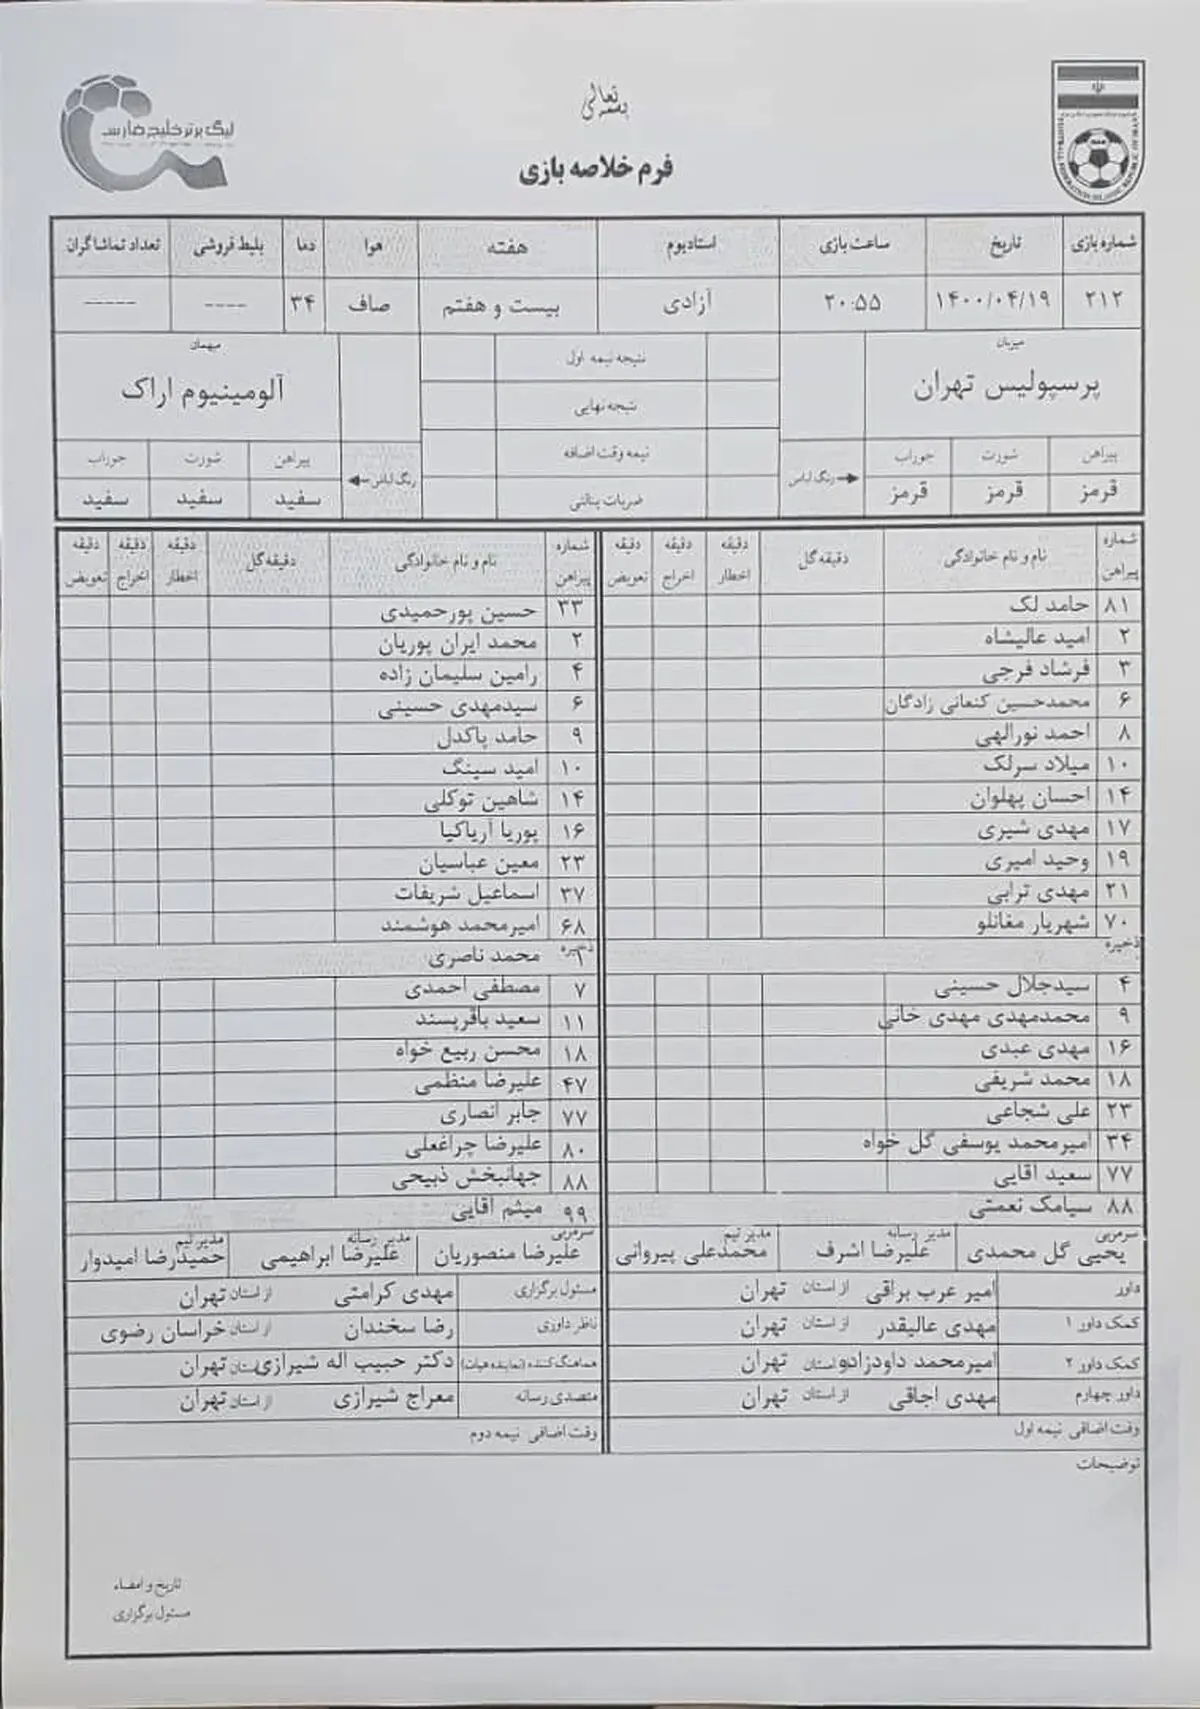 بسمه تعالی
لیگ برتر خلیج فارس
فرم خلاصه بازی
شماره بازی تاریخ ساعت بازی استادیوم هفته هوا دما بلیط فروشی تعداد تماشاگران
۲۱۲ ۱۴۰۰/۰۴/۱۹ ۲۰:۵۵ آزادی بیست و هفتم صاف ۳۴ ---- -----
میزبان نتیجه نیمه اول میهمان
پرسپولیس تهران نتیجه نهایی آلومینیوم اراک
پیراهن شورت جوراب رنگ لباس نیمه وقت اضافه رنگ لباس پیراهن شورت جوراب
قرمز قرمز قرمز ضربات پنالتی سفید سفید سفید
شماره پیراهن نام و نام خانوادگی دقیقه گل دقیقه اخطار دقیقه اخراج دقیقه تعویض
۸۱ حامد لک
۲ امید عالیشاه
۳ فرشاد فرجی
۶ محمدحسین کنعانی زادگان
۸ احمد نورالهی
۱۰ میلاد سرلک
۱۴ احسان پهلوان
۱۷ مهدی شیری
۱۹ وحید امیری
۲۱ مهدی ترابی
۷۰ شهریار مغانلو
ذخیره
۴ سیدجلال حسینی
۹ محمدمهدی مهدی خانی
۱۶ مهدی عبدی
۱۸ محمد شریفی
۲۳ علی شجاعی
۳۴ امیرمحمد یوسفی گل خواه
۷۷ سعید آقایی
۸۸ سیامک نعمتی
سرمربی یحیی گل محمدی مدیر رسانه علیرضا اشرف مدیر تیم محمدعلی پیروانی
شماره پیراهن نام و نام خانوادگی دقیقه گل دقیقه اخطار دقیقه اخراج دقیقه تعویض
۳۳ حسین پورحمیدی
۲ محمد ایران پوریان
۴ رامین سلیمان زاده
۶ سیدمهدی حسینی
۹ حامد پاکدل
۱۰ امید سینگ
۱۴ شاهین توکلی
۱۶ پوریا آریاکیا
۲۳ معین عباسیان
۳۷ اسماعیل شریفات
۶۸ امیرمحمد هوشمند
ذخیره
۱ محمد ناصری
۷ مصطفی احمدی
۱۱ سعید باقرپسند
۱۸ محسن ربیع خواه
۴۷ علیرضا منظمی
۷۷ جابر انصاری
۸۰ علیرضا چراغعلی
۸۸ جهانبخش ذبیحی
۹۹ میثم آقایی
سرمربی علیرضا منصوریان مدیر رسانه علیرضا ابراهیمی مدیر تیم حمیدرضا امیدوار
داور امیر عرب براقی از استان تهران
کمک داور ۱ مهدی عالیقدر از استان تهران
کمک داور ۲ امیرمحمد داودزاده از استان تهران
داور چهارم مهدی اجاقی از استان تهران
وقت اضافی نیمه اول
مسئول برگزاری مهدی کرامتی از استان تهران
ناظر داوری رضا سخندان از استان خراسان رضوی
هماهنگ کننده (نماینده هیات) دکتر حبیب اله شیرازی استان تهران
متصدی رسانه معراج شیرازی از استان تهران
وقت اضافی نیمه دوم
توضیحات
تاریخ و امضاء
مسئول برگزاری